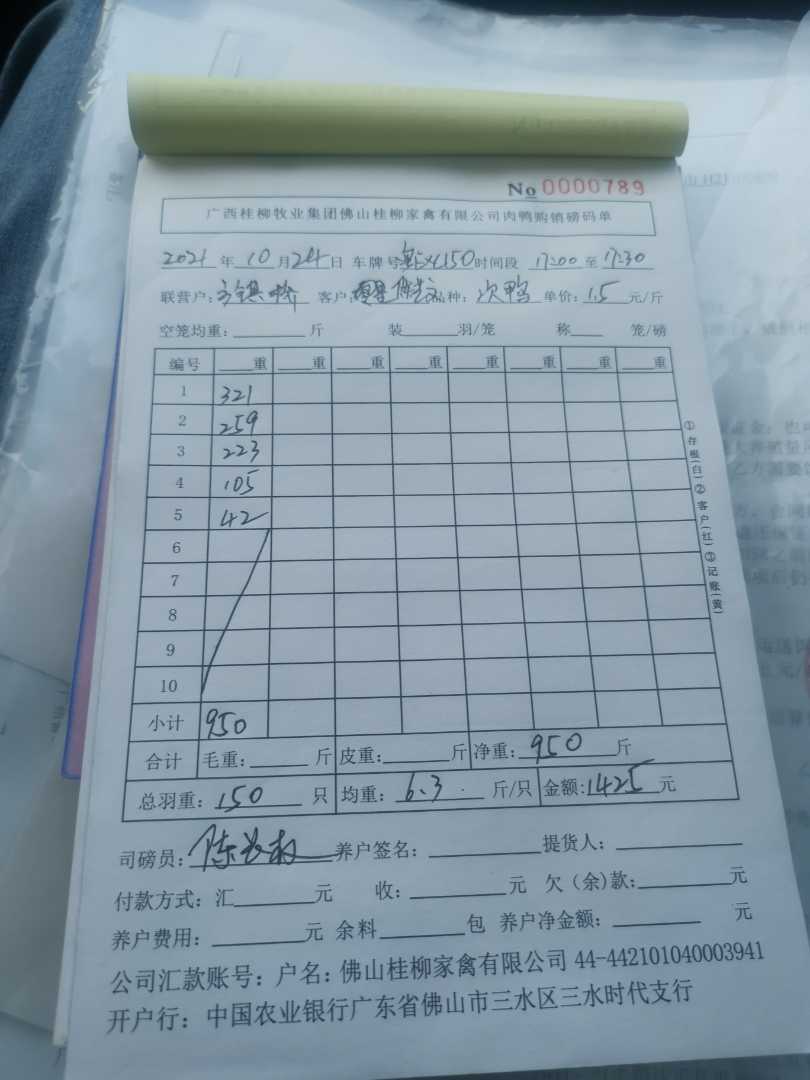 No 0000789
广西桂柳牧业集团佛山桂柳家禽有限公司肉鸭购销磅码单
2021年10月24日 车牌号: 时间段 17:00至17:30
联营户: 客户: 品种: 次鸭 单价: 1.5元/斤
空笼均重:____斤 装____羽/笼 称____笼/磅
编号 ____重 ____重 ____重 ____重 ____重 ____重 ____重 ____重
1 321
2 259
3 223
4 105
5 42
6
7
8
9
10
小计 950
合计 毛重:____斤 皮重:____斤 净重: 950斤
总羽重: 150只 均重: 6.3斤/只 金额: 1425元
司磅员: 陈 养户签名:____ 提货人:____
付款方式: 汇____元 收:____元 欠(余)款:____元
养户费用:____元 余料____包 养户净金额:____元
公司汇款账号: 户名: 佛山桂柳家禽有限公司 44-442101040003941
开户行: 中国农业银行广东省佛山市三水区三水时代支行
①存根(白)②客户(红)③记账(黄)